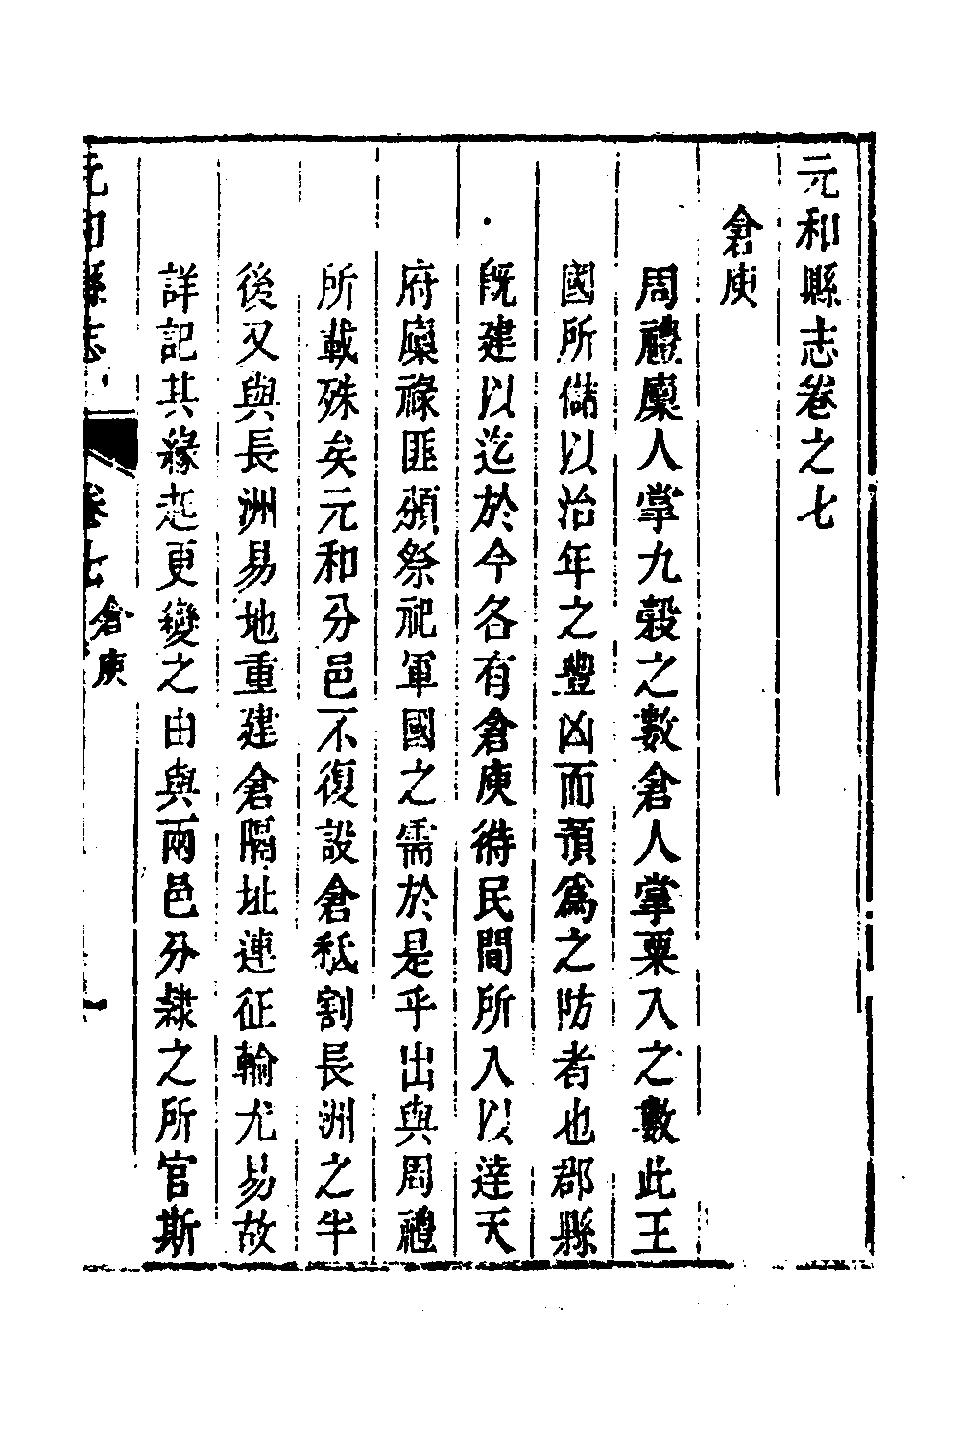 元和縣志卷之七
倉庾
周禮廩人掌九穀之數倉人掌粟入之數此王
國所儲以治年之豐凶而預爲之防者也郡縣
旣建以迄於今各有倉庾待民間所入以達天
府廩祿匪頒祭祀軍國之需於是乎出與周禮
所載殊矣元和分邑不復設倉秪割長洲之半
後又與長洲易地重建倉隔址連征輸尤易故
詳記其緣起更變之由與兩邑分隸之所官斯
元和縣志
卷七
倉庾
一